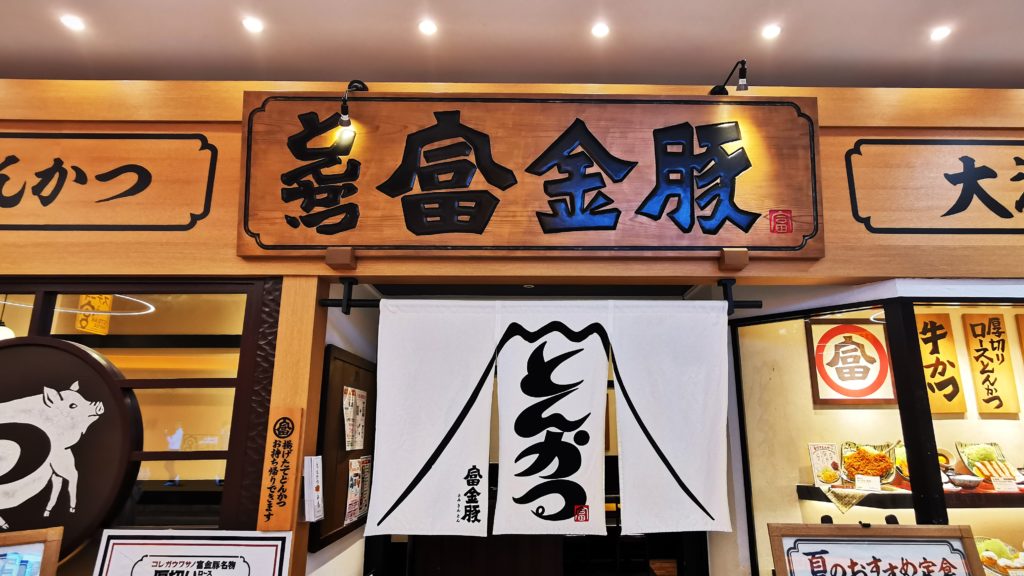 んかつ
とんかつ
富金豚
富
大
とんかつ
富金豚
ふきんとん
富
富
牛かつ
厚切り
ロースとんかつ
富
揚げたてとんかつ
お持ち帰りできます
コレガウワサノ富金豚名物
厚切り
ロース
夏のおすすめ定食